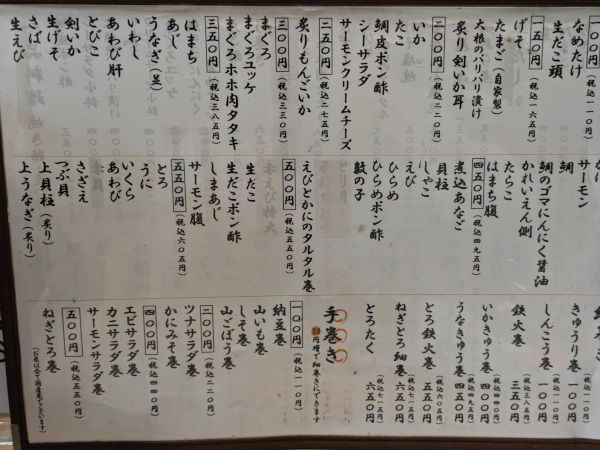 一〇〇円（税込一一〇円）
なめたけ
生だこ頭
一五〇円（税込一六五円）
げそ
たまご（自家製）
大根のパリパリ漬け
炙り剣いか耳
二〇〇円（税込二二〇円）
いか
たこ
鯛皮ポン酢
シーサラダ
サーモンクリームチーズ
二五〇円（税込二七五円）
炙りもんごいか
三〇〇円（税込三三〇円）
まぐろ
まぐろユッケ
まぐろホホ肉タタキ
三五〇円（税込三八五円）
はまち
あじ
うなぎ（並）
いわし
あわび肝
とびこ
剣いか
生げそ
さば
生えび
サーモン
鯛
鯛のゴマにんにく醤油
かれいえん側
たらこ
はまち腹
四五〇円（税込四九五円）
煮込あなご
貝柱
しゃこ
えび
ひらめ
ひらめポン酢
数の子
えびとかにのタルタル巻
五〇〇円（税込五五〇円）
生だこ
生だこポン酢
しまあじ
サーモン腹
五五〇円（税込六〇五円）
とろ
うに
いくら
あわび
さざえ
つぶ貝
上貝柱（炙り）
上うなぎ（炙り）
きゅうり巻 一〇〇円（税込一一〇円）
しんこう巻 一〇〇円（税込一一〇円）
鉄火巻 三五〇円（税込三八五円）
いかきゅう巻 四〇〇円（税込四四〇円）
うなきゅう巻 四五〇円（税込四九五円）
とろ鉄火巻 五五〇円（税込六〇五円）
ねぎとろ細巻 六五〇円（税込七一五円）
とろたく 六五〇円（税込七一五円）
手巻き
50円増で細巻きにできます
一〇〇円（税込一一〇円）
納豆巻
山いも巻
しそ巻
山ごぼう巻
二〇〇円（税込二二〇円）
ツナサラダ巻
かにみそ巻
四〇〇円（税込四四〇円）
エビサラダ巻
カニサラダ巻
サーモンサラダ巻
五〇〇円（税込五五〇円）
ねぎとろ巻
（お米は全て国産米でございます）